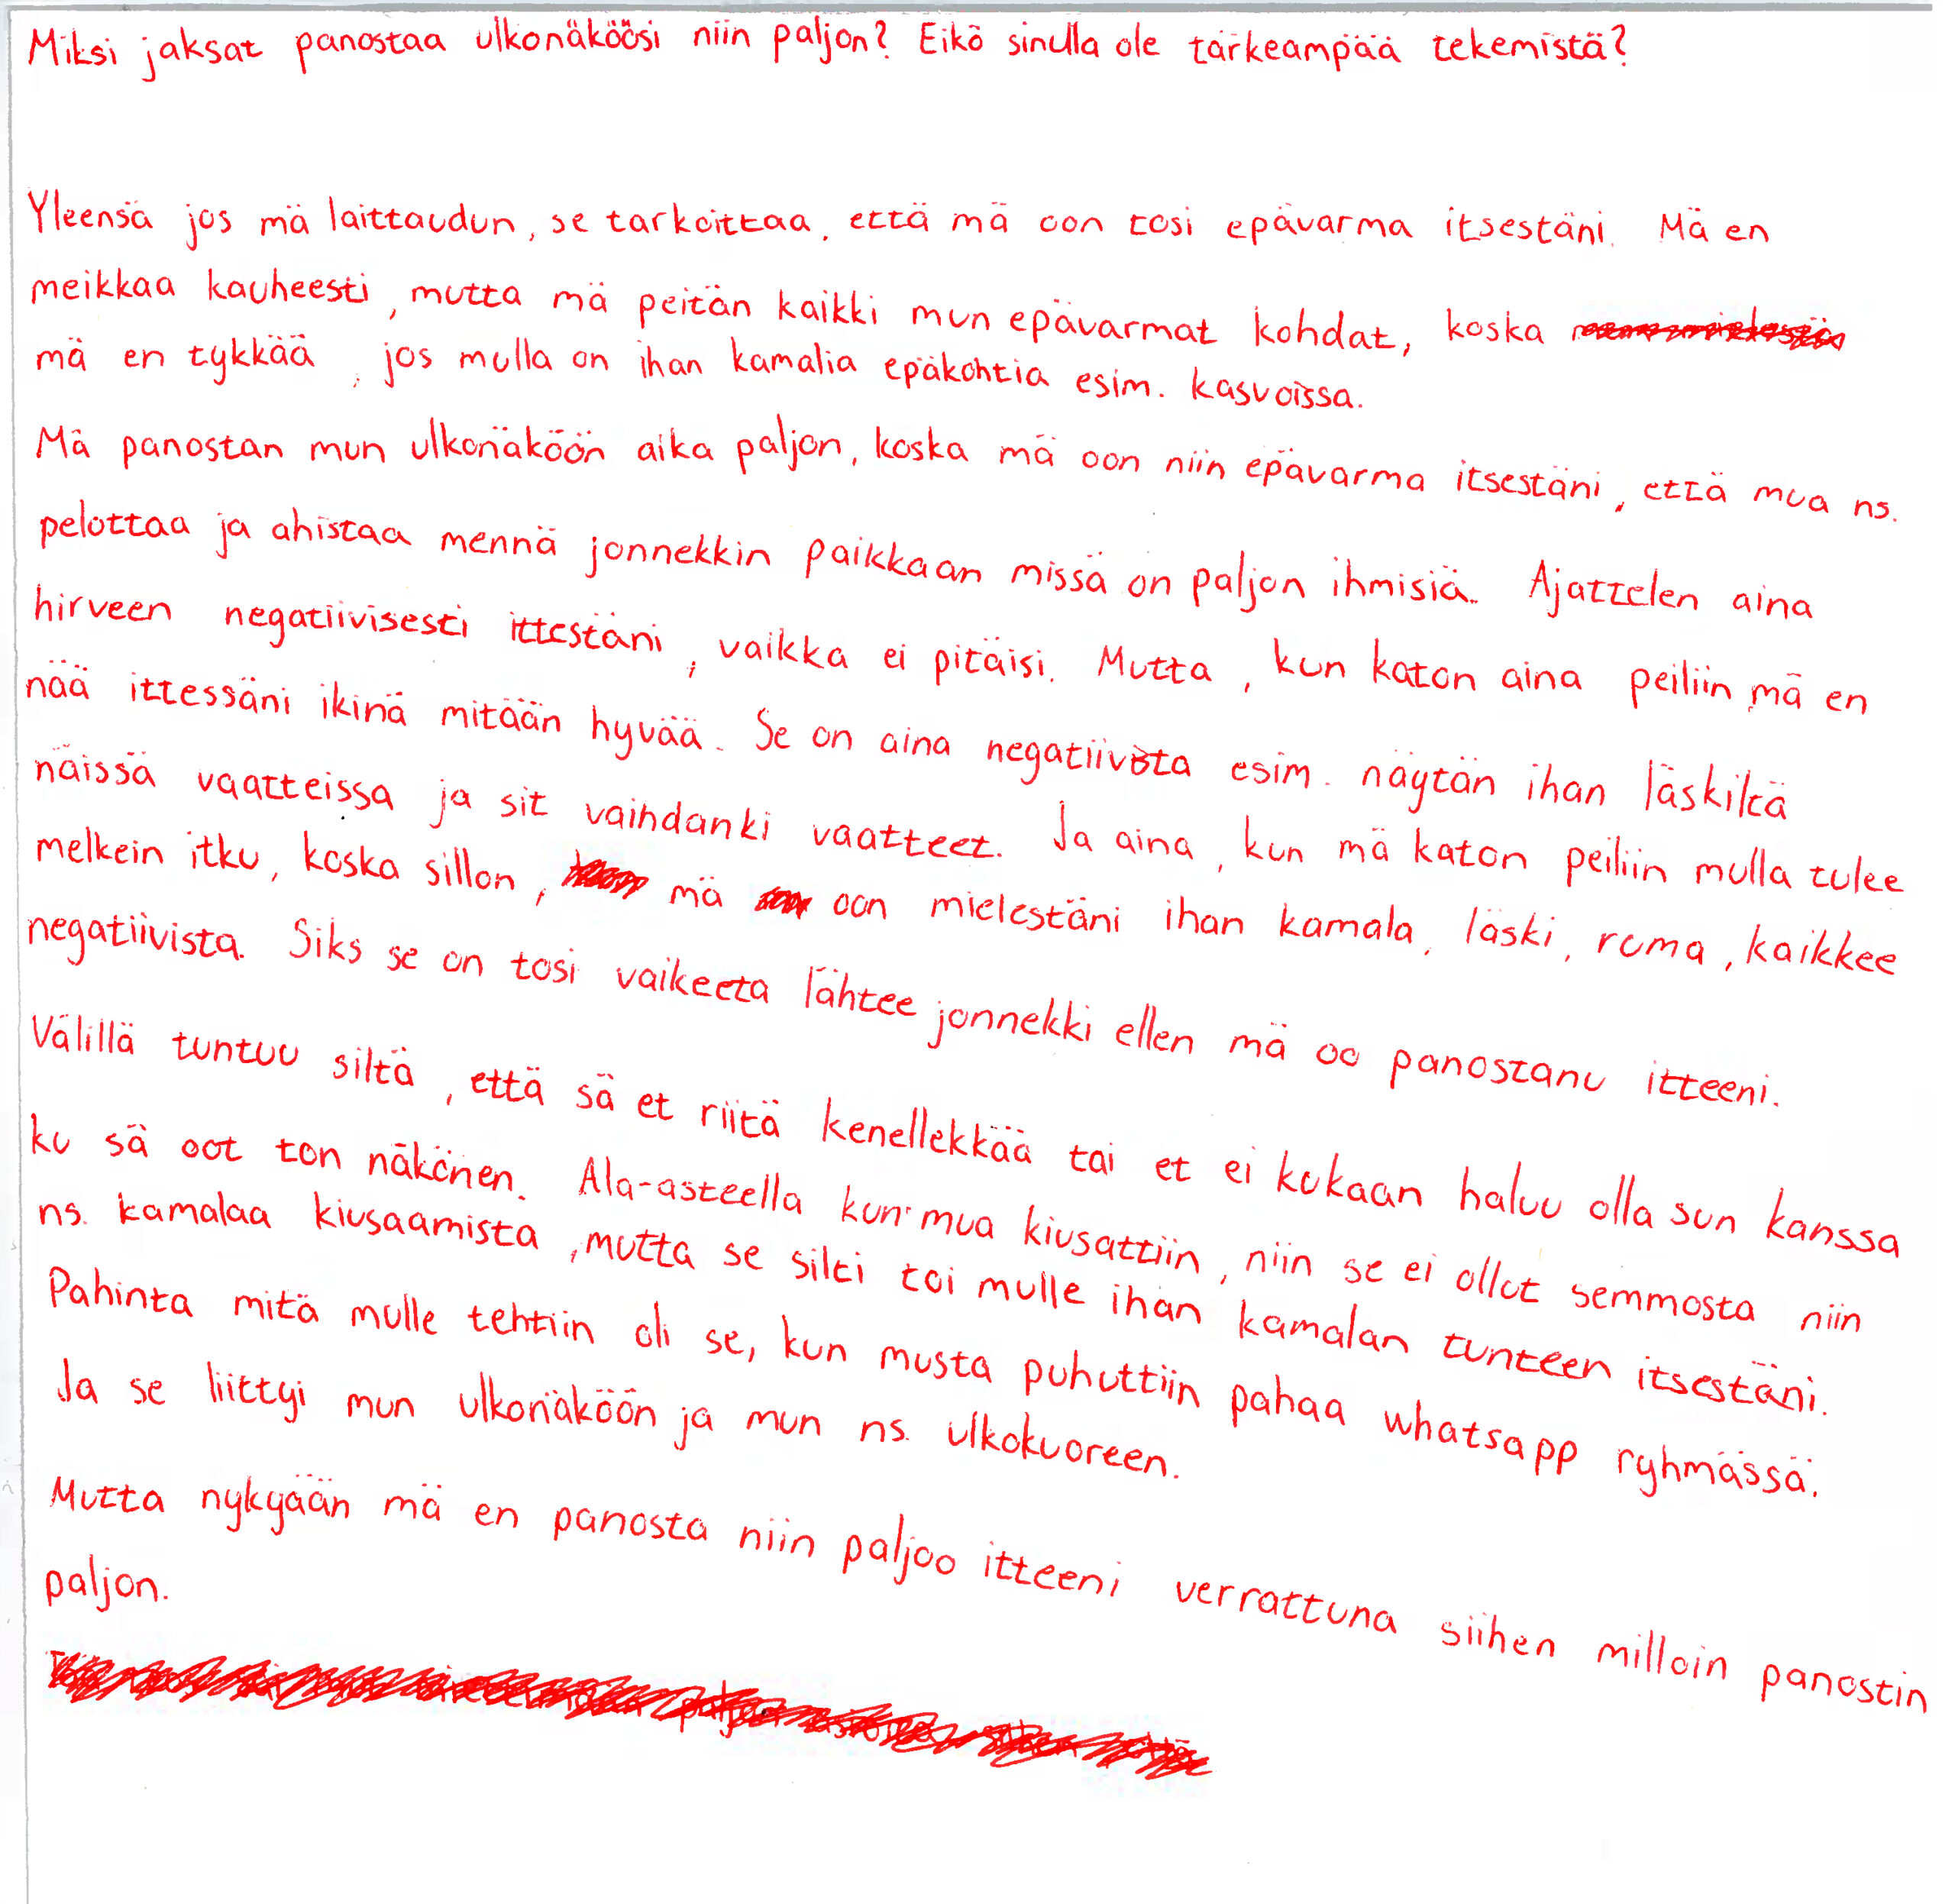 Miksi jaksat panostaa ulkonäköösi niin paljon? Eikö sinulla ole tärkeampää tekemistä?
Yleensä jos mä laittaudun, se tarkoittaa, että mä oon tosi epävarma itsestäni. Mä en
meikkaa kauheesti, mutta mä peitän kaikki mun epävarmat kohdat, koska
mä en tykkää, jos mulla on ihan kamalia epäkohtia esim. kasvoissa.
Mä panostan mun ulkonäköön aika paljon, koska mä oon niin epävarma itsestäni, että mua ns.
pelottaa ja ahistaa mennä jonnekkin paikkaan missä on paljon ihmisiä. Ajattelen aina
hirveen negatiivisesti ittestäni, vaikka ei pitäisi. Mutta, kun katon aina peiliin mä en
nää ittessäni ikinä mitään hyvää. Se on aina negatiivista esim. näytän ihan läskiltä
näissä vaatteissa ja sit vaihdanki vaatteet. Ja aina, kun mä katon peiliin mulla tulee
melkein itku, koska sillon, mä oon mielestäni ihan kamala, läski, ruma, kaikkee
negatiivista. Siks se on tosi vaikeeta lähtee jonnekki ellen mä oo panostanu itteeni.
Välillä tuntuu siltä, että sä et riitä kenellekkää tai et ei kukaan haluu olla sun kanssa
ku sä oot ton näkönen. Ala-asteella kun mua kiusattiin, niin se ei ollut semmosta niin
ns. kamalaa kiusaamista, mutta se silti toi mulle ihan kamalan tunteen itsestäni.
Pahinta mitä mulle tehtiin oli se, kun musta puhuttiin pahaa whatsapp ryhmässä.
Ja se liittyi mun ulkonäköön ja mun ns. ulkokuoreen.
Mutta nykyään mä en panosta niin paljoo itteeni verrattuna siihen milloin panostin
paljon.